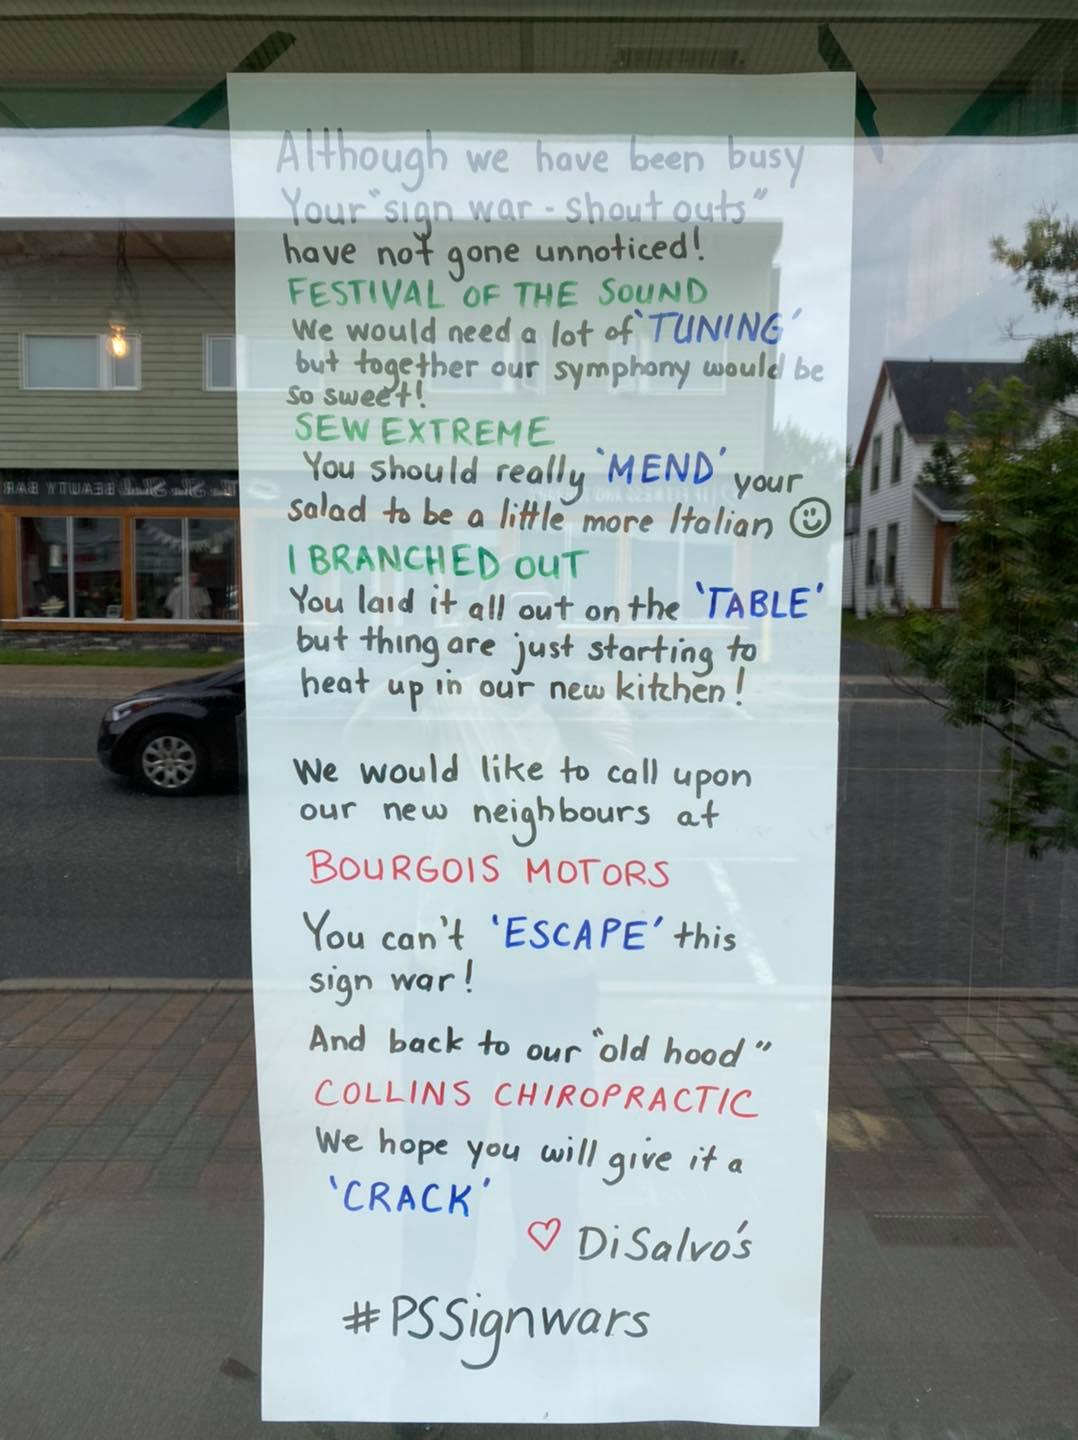 Although we have been busy
Your "sign war - shout outs"
have not gone unnoticed!
FESTIVAL OF THE SOUND
We would need a lot of 'TUNING'
but together our symphony would be
so sweet!
SEW EXTREME
You should really 'MEND' your
salad to be a little more Italian
I BRANCHED OUT
You laid it all out on the 'TABLE'
but thing are just starting to
heat up in our new kitchen!
We would like to call upon
our new neighbours at
BOURGOIS MOTORS
You can't 'ESCAPE' this
sign war!
And back to our "old hood"
COLLINS CHIROPRACTIC
We hope you will give it a
'CRACK'
DiSalvo's
#PSSignwars
BEAUTY BAR